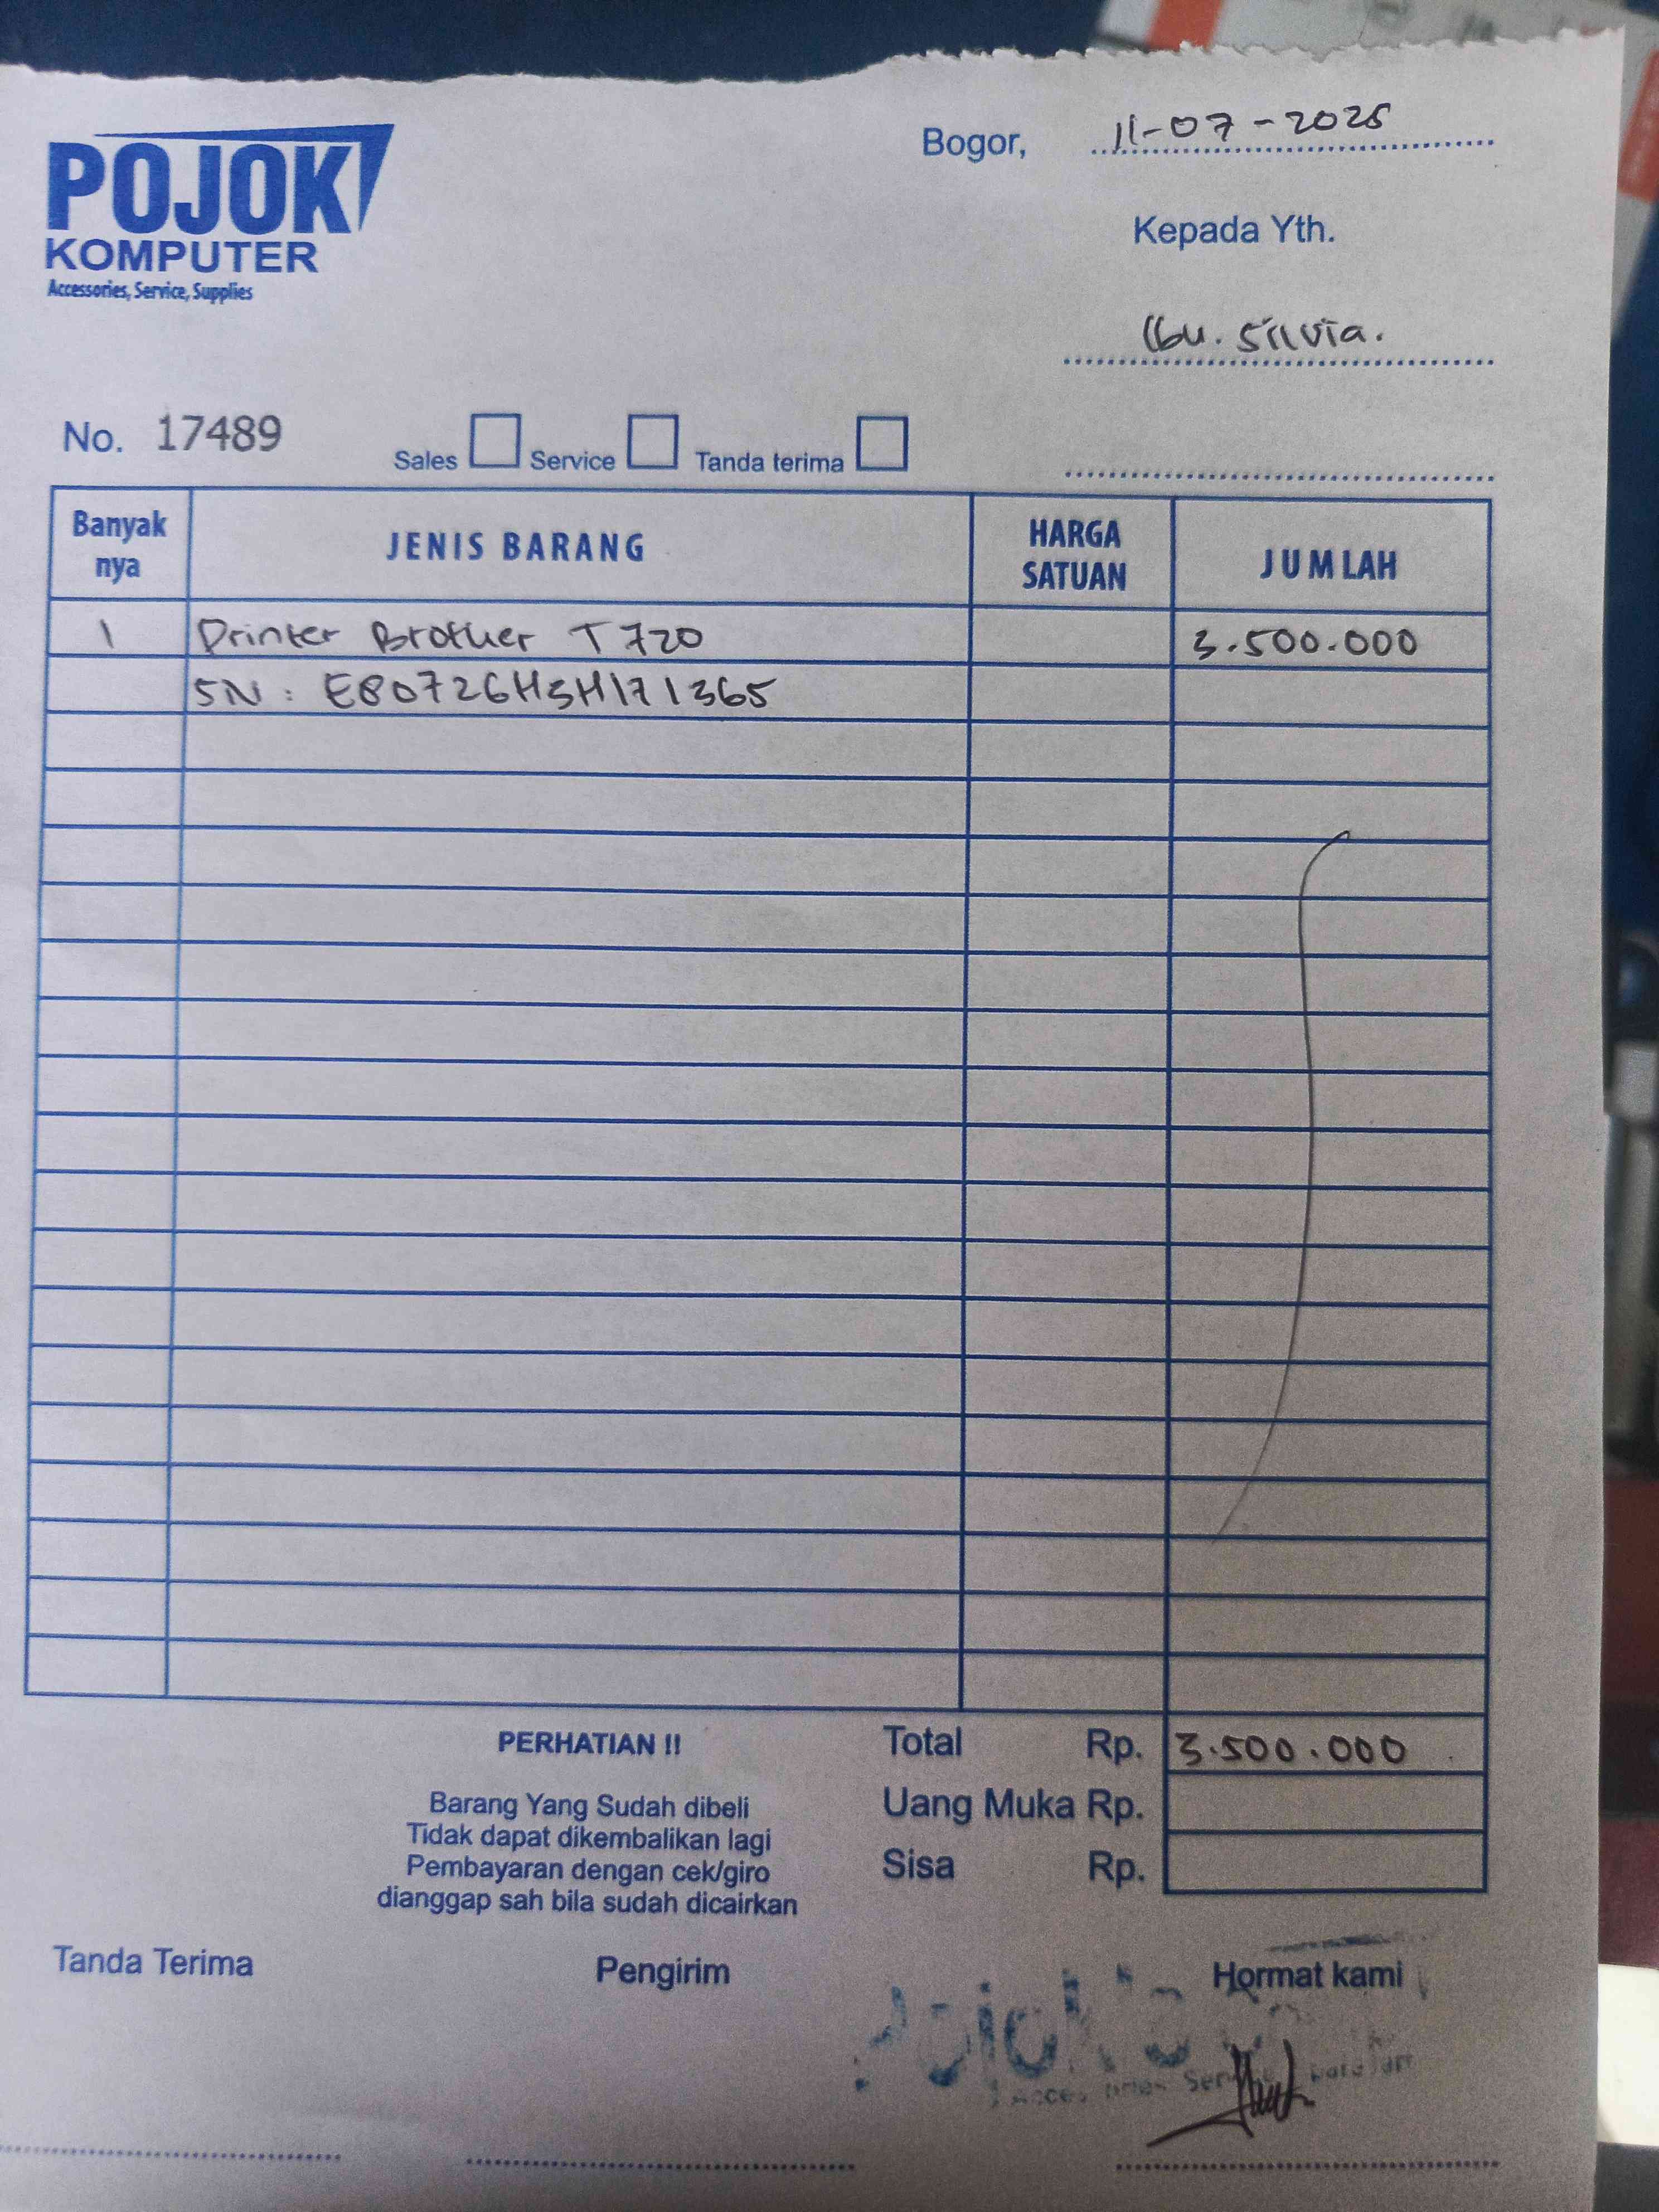 POJOK
KOMPUTER
Accessories, Service, Supplies
Bogor, 11-07-2025
Kepada Yth.
Ibu. Silvia.
No. 17489
Sales Service Tanda terima
Banyak nya JENIS BARANG HARGA SATUAN JUMLAH
1 Printer Brother T720 3.500.000
SN: E80726H5H171365
Total Rp. 3.500.000
Uang Muka Rp.
Sisa Rp.
PERHATIAN !!
Barang Yang Sudah dibeli
Tidak dapat dikembalikan lagi
Pembayaran dengan cek/giro
dianggap sah bila sudah dicairkan
Tanda Terima Pengirim Hormat kami
Pojok